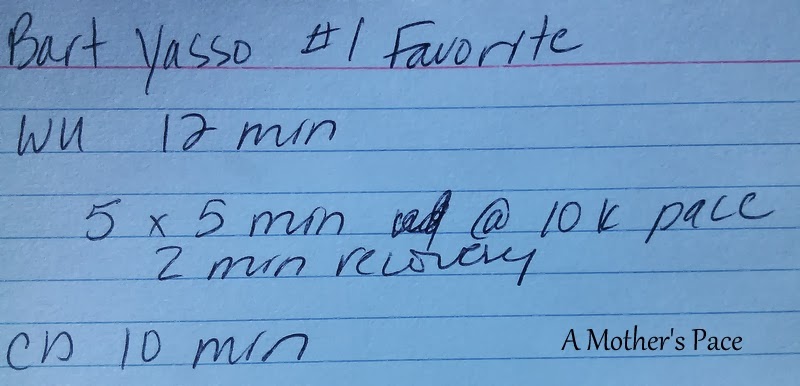 Bart Yasso #1 Favorite
WU 12 min
5 x 5 min @ 10K pace
2 min recovery
CD 10 min
A Mother's Pace